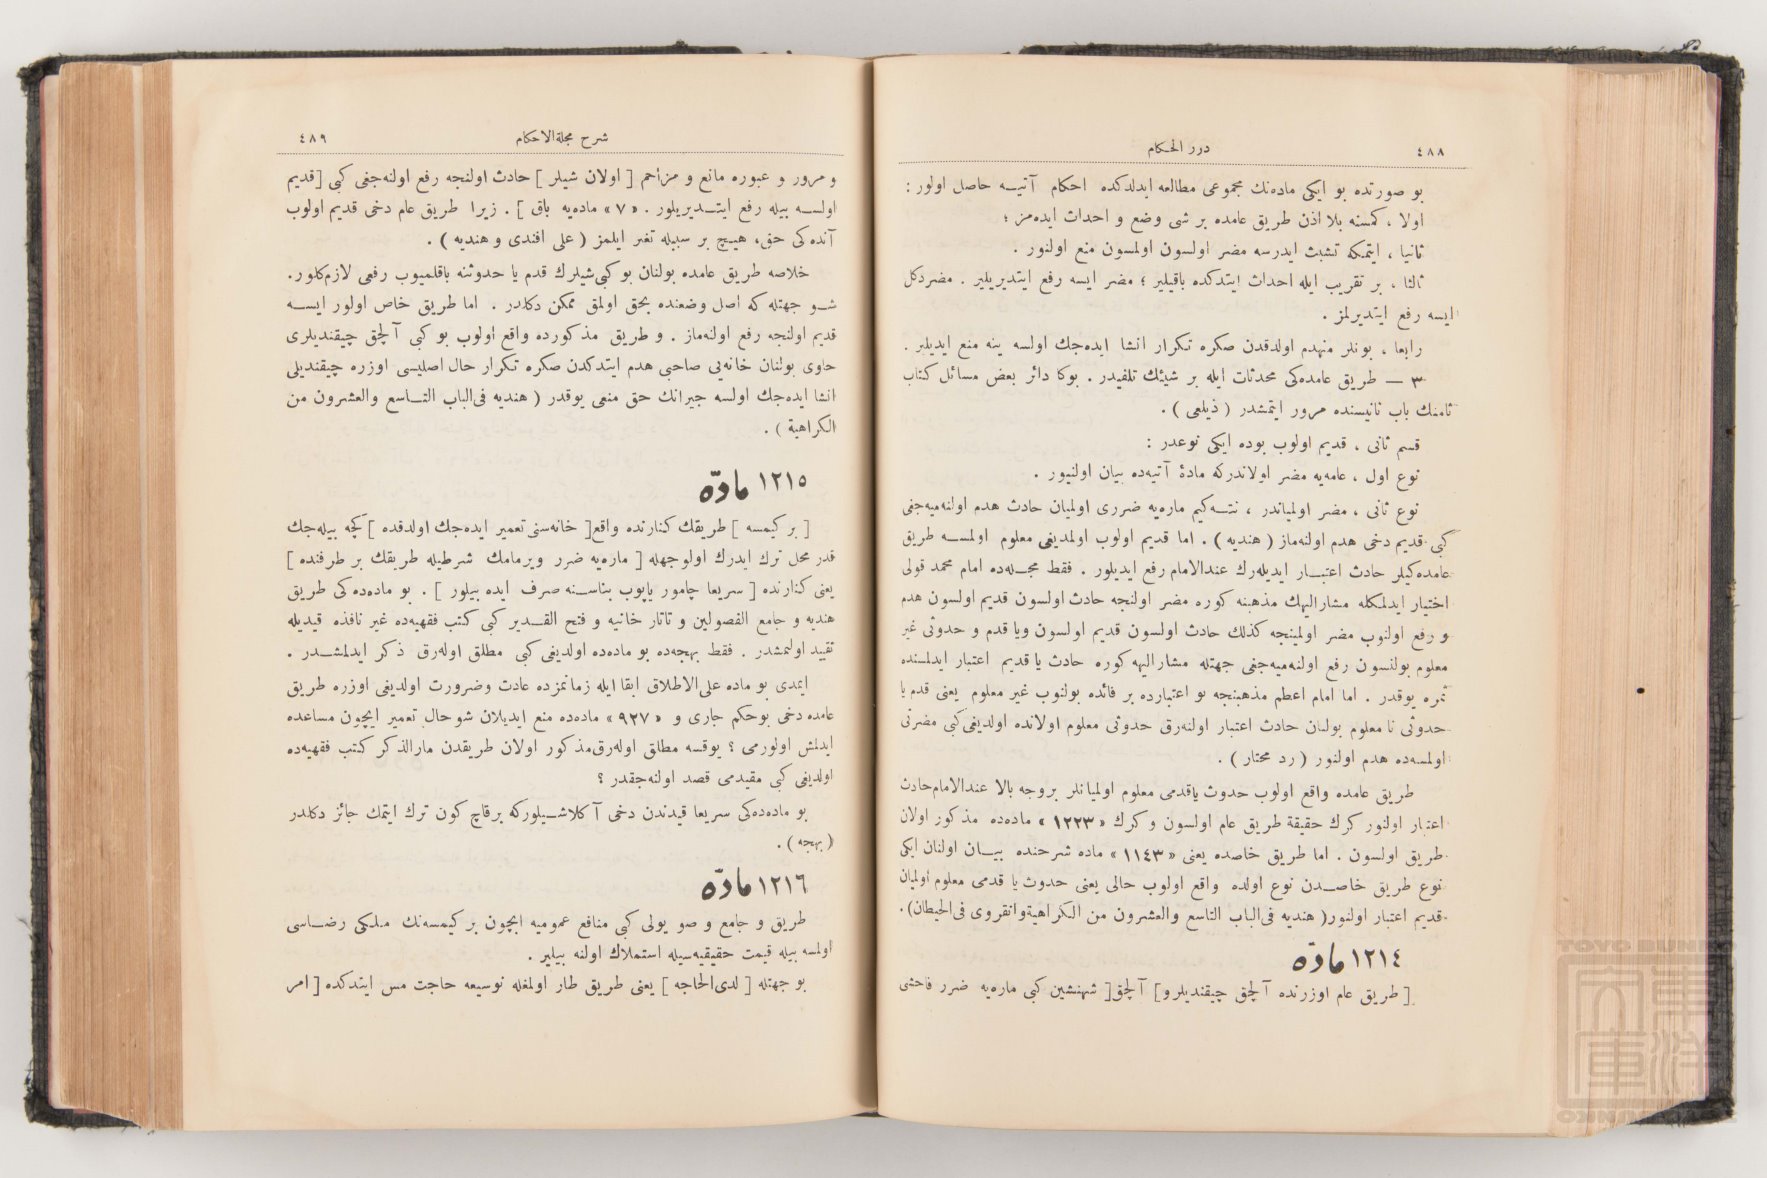 ٤٨٨
درر الحكام
بو صورتده بو ایكی ماده‌نك مجموعی مطالعه ایدلدكده احكام آتیــه حاصل اولور :
اولا ، كمسنه بلا اذن طریق عامده بر شی وضع و احداث ایده‌مز ؛
ثانیا ، ایتمكه تشبث ایدرسه مضر اولسون اولمسون منع اولنور .
ثالثا ، بر تقریب ایله احداث ایتدكده باقیلیر ؛ مضر ایسه رفع ایتدیریلیر . مضر دكل
ایسه رفع ایتدیرلمز .
رابعا ، بونلر منهدم اولدقدن صكره تكرار انشا ایده‌جك اولسه ینه منع ایدیلیر .
٣ — طریق عامده‌كی محدثات ایله بر شیئك تلفیدر . بوكا دائر بعض مسائل كتاب
ثامنك باب ثانیسنده مرور ایتمشدر ( ذیلعی ) .
قسم ثانی ، قدیم اولوب بوده ایكی نوعدر :
نوع اول ، عامه‌یه مضر اولاندركه مادۀ آتیه‌ده بیان اولنیور .
نوع ثانی ، مضر اولمیاندر ، نتــه‌كیم ماره‌یه ضرری اولمیان حادث هدم اولنه‌میه‌جغی
كبی قدیم دخی هدم اولنه‌ماز ( هندیه ) . اما قدیم اولوب اولمدیغی معلوم اولمســه طریق
عامده‌كیلر حادث اعتبــار ایدیله‌رك عندالامام رفع ایدیلور . فقط مجــله‌ده امام محمد قولی
اختیار ایدلمكله مشارالیهك مذهبنه كوره مضر اولنجه حادث اولسون قدیم اولسون هدم
و رفع اولنوب مضر اولمینجه كذلك حادث اولسون قدیم اولسون ویا قدم و حدوثی غیر
معلوم بولنسون رفع اولنه‌میه‌جغی جهتله مشارالیهه كوره حادث یا قدیم اعتبار ایدلمسنده
ثمره یوقدر . اما امام اعظم مذهبنجه بو اعتبارده بر فائده بولنوب غیر معلوم یعنی قدم یا
حدوثی نا معلوم بولنان حادث اعتبار اولنه‌رق حدوثی معلوم اولانده اولدیغی كبی مضرتی
اولمسه‌ده هدم اولنور ( رد محتار ) .
طریق عامده واقع اولوب حدوث یاقدمی معلوم اولمیانلر بروجه بالا عندالامام حادث
اعتبار اولنور كرك حقیقة طریق عام اولسون و كرك « ١٢٢٣ » ماده‌ده مذكور اولان
طریق اولسون . اما طریق خاصده یعنی « ١١٤٣ » ماده شرحنده بیــان اولنان ایكی
نوع طریق خاصــدن نوع اولده واقع اولوب حالی یعنی حدوث یا قدمی معلوم اولمیان
قدیم اعتبار اولنور( هندیه فی‌الباب التاسع والعشرون من الكراهیة وانقروی فی‌الحیطان).
١٢١٤ مادّه
[ طریق عام اوزرنده آلچق چیقندیلر و] آلچق[ شهنشین كبی ماره‌یه ضرر فاحشی
٤٨٩
شرح مجلةالاحكام
و مرور و عبوره مانع و مزاحم [ اولان شیلر ] حادث اولنجه رفع اولنه‌جغی كبی [قدیم
اولســه بیله رفع ایتــدیریلور . « ٧ » ماده‌یه باق ] . زیرا طریق عام دخی قدیم اولوب
آنده‌كی حق، هیــچ بر سبیله تغیر ایلمز ( علی افندی و هندیه ) .
خلاصه طریق عامده بولنان بو كبی شیلرك قدم یا حدوثنه باقلمیوب رفعی لازم كلور.
شــو جهتله كه اصل وضعنده بحق اولمق ممكن دكلدر . اما طریق خاص اولور ایســه
قدیم اولنجه رفع اولنه‌ماز . و طریق مذكورده واقع اولوب بو كبی آلچق چیقندیلری
حاوی بولنان خانه‌یی صاحبی هدم ایتدكدن صكره تكرار حال اصلیسی اوزره چیقندیلی
انشا ایده‌جك اولسه جیرانك حق منعی یوقدر ( هندیه فی‌الباب التــاسع والعشرون من
الكراهیة ) .
١٢١٥ مادّه
[ بر كیمسه ] طریقك كنارنده واقع[ خانه‌سنی تعمیر ایده‌جك اولدقده ] كچه بیله‌جك
قدر محل ترك ایدرك اولوجهله [ ماره‌یه ضرر ویرمامك شرطیله طریقك بر طرفنده ]
یعنی كنارنده [ سریعا چامور یاپوب بناســنه صرف ایده بیلور ] . بو ماده‌ده‌كی طریق
هندیه و جامع الفصولین و تاتار خانیه و فتح القــدیر كبی كتب فقهیه‌ده غیر نافذه قیدیله
تقیید اولنمشدر . فقط بهجه‌ده بو ماده‌ده اولدیغی كبی مطلق اوله‌رق ذكر ایدلمشــدر .
ایمدی بو ماده علی‌الاطلاق ابقا ایله زمانمزده عادت وضرورت اولدیغی اوزره طریق
عامده دخی بوحكم جاری و « ٩٢٧ » ماده‌ده منع ایدیلان شو حال تعمیر ایچون مساعده
ایدلمش اولورمی ؟ یوقسه مطلق اوله‌رق مذكور اولان طریقدن مارالذكر كتب فقهیه‌ده
اولدیغی كبی مقیدمی قصد اولنه‌جقدر ؟
بو ماده‌ده‌كی سریعا قیدندن دخی آكلاشــیلوركه برقاچ كون ترك ایتمك جائز دكلدر
( بهجه ) .
١٢١٦ مادّه
طریق و جامع و صو یولی كبی منافع عمومیه ایچون بر كیمسه‌نك ملكی رضــاسی
اولمسه بیله قیمت حقیقیه‌سیله استملاك اولنه بیلیر .
بو جهتله [ لدی‌الحاجه ] یعنی طریق طار اولمغله توسیعه حاجت مس ایتدكده [ امر
TOYO BUNKO
東洋文庫
TOYO BUNKO